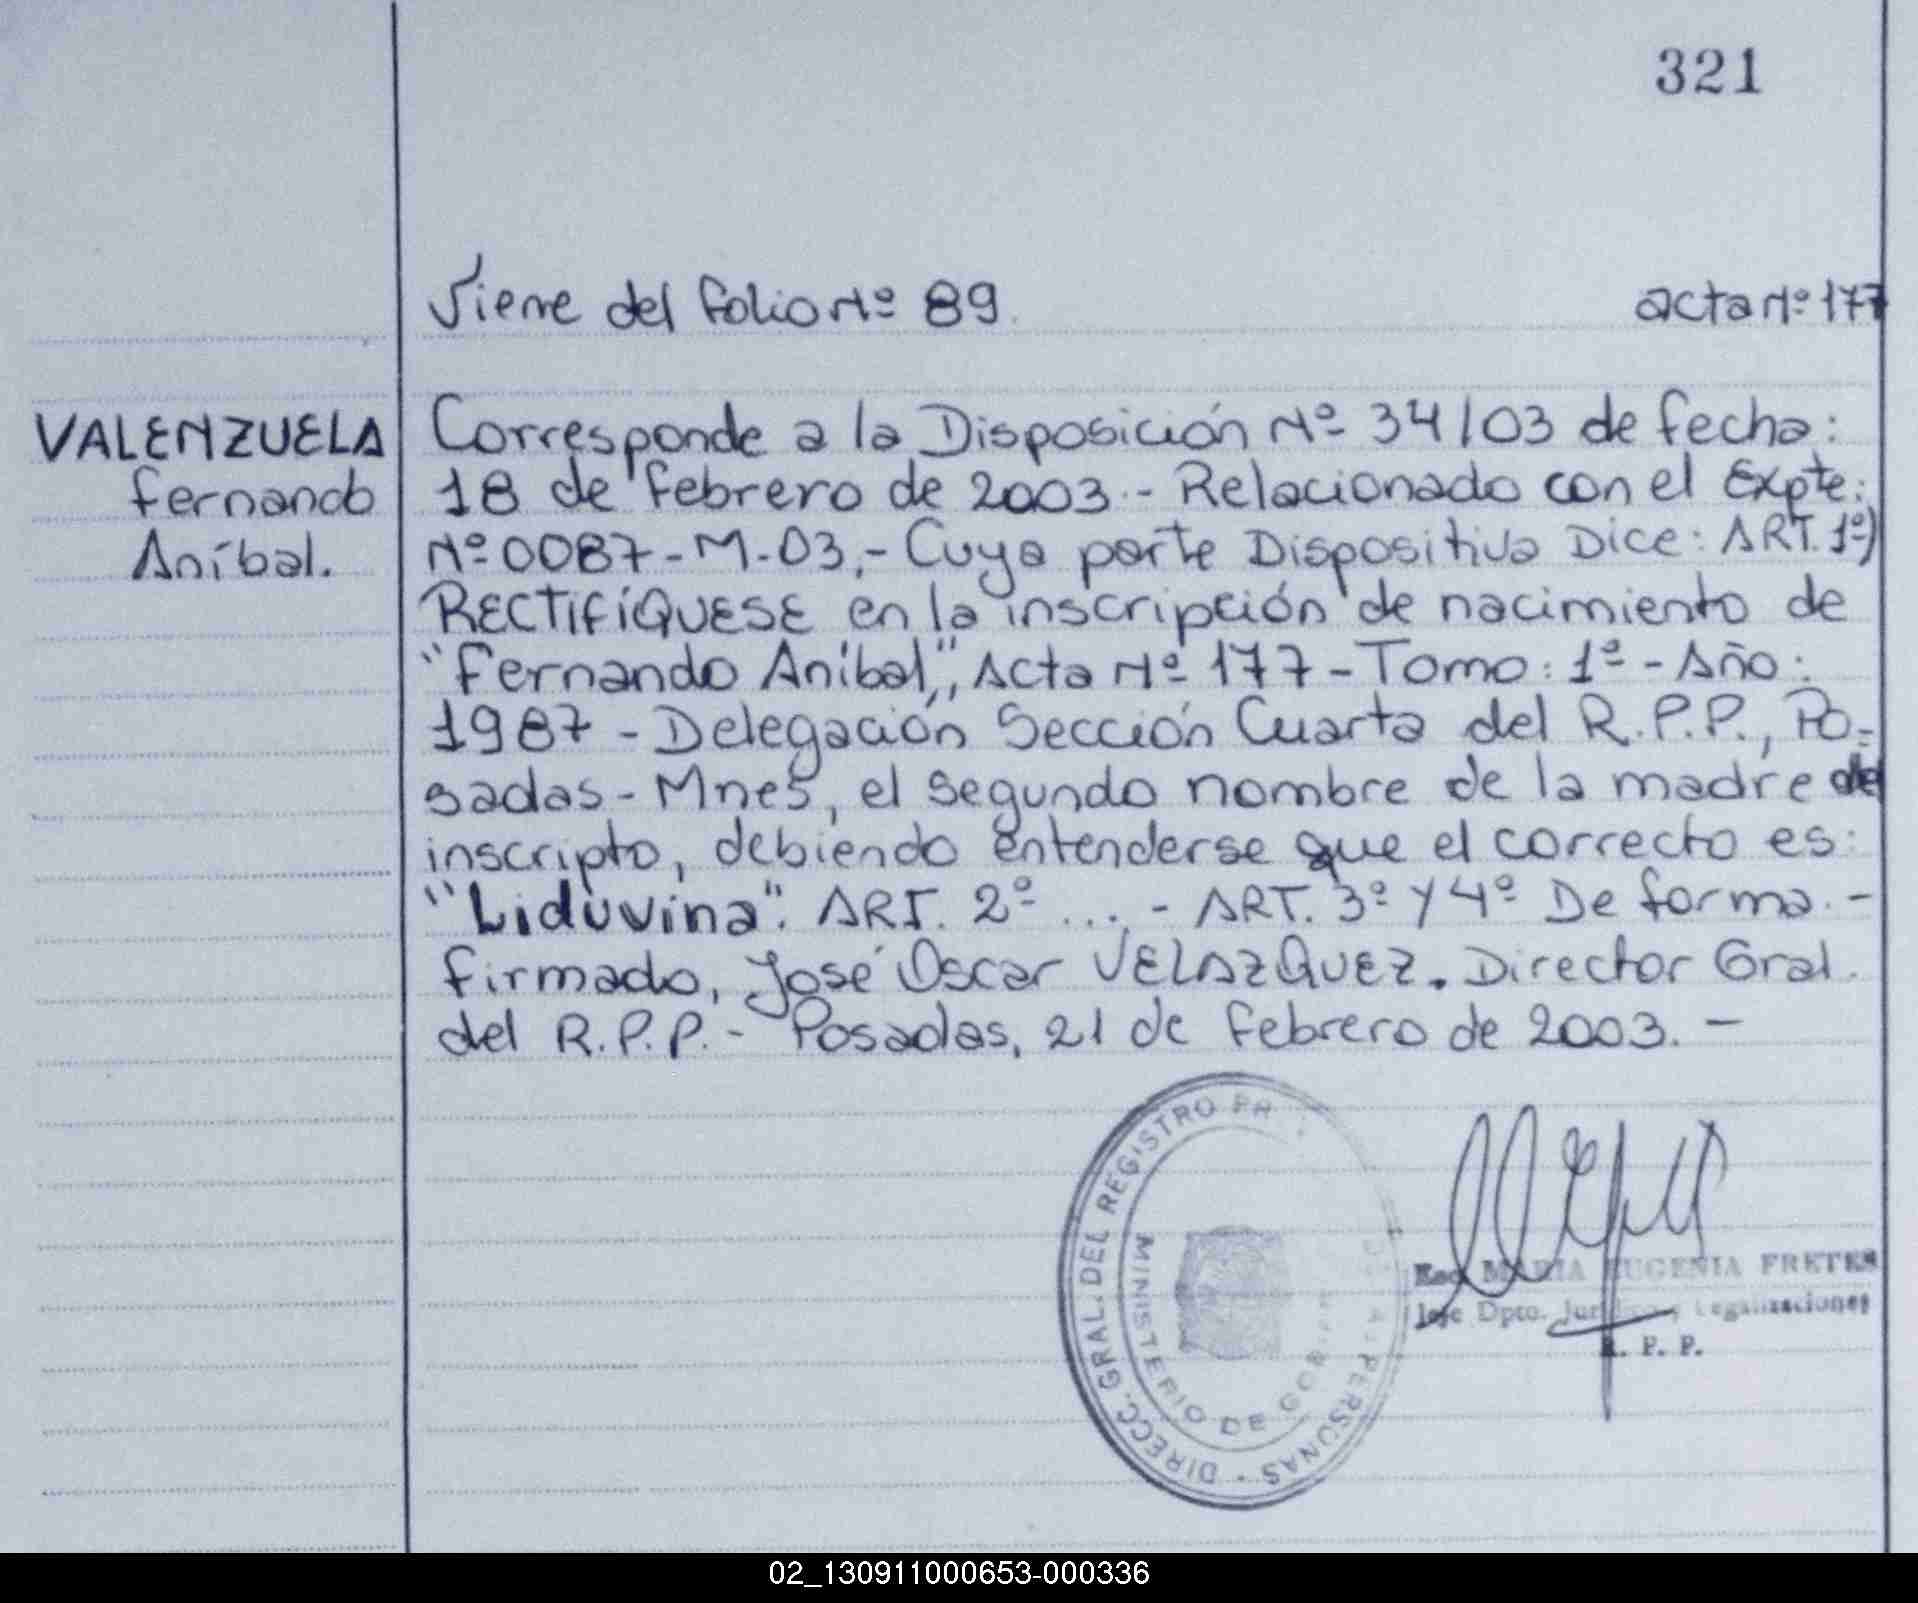 321
Viene del folio Nº 89. acta Nº 177
VALENZUELA
Fernando
Aníbal.
Corresponde a la Disposición Nº 34/03 de fecha:
18 de febrero de 2003.- Relacionado con el Expte:
Nº 0087-M-03.- Cuya parte Dispositiva Dice: ART. 1º)
RECTIFÍQUESE en la inscripción de nacimiento de
"Fernando Aníbal", Acta Nº 177 - Tomo: 1º - Año:
1987 - Delegación Sección Cuarta del R.P.P., Po-
sadas - Mnes, el segundo nombre de la madre del
inscripto, debiendo entenderse que el correcto es:
"Liduvina". ART. 2º ... - ART. 3º y 4º De forma.-
Firmado, José Oscar VELAZQUEZ. Director Gral.
del R.P.P.- Posadas, 21 de Febrero de 2003. -
DIRECC. GRAL. DEL REGISTRO PERSONAS
MINISTERIO DE
Esc. MARIA EUGENIA FRETES
Jefe Dpto. Jurídico y Legalizaciones
R. P. P.
02_130911000653-000336